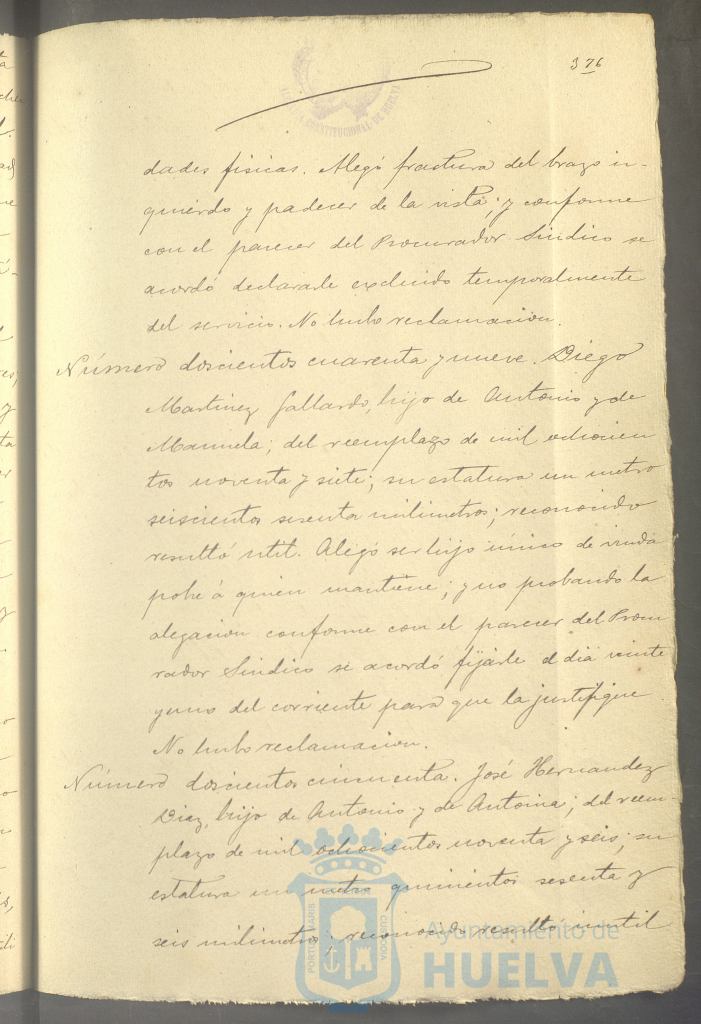 376
ALCALDIA CONSTITUCIONAL DE HUELVA
dades fisicas. Alegó fractura del brazo iz-
quierdo y padecer de la vista; y conforme
con el parecer del Procurador Sindico se
acordó declararle excluido temporalmente
del servicio. No hubo reclamacion.
Número doscientos cuarenta y nueve. Diego
Martinez Gallardo, hijo de Antonio y de
Manuela; del reemplazo de mil ochocien
tos noventa y siete; su estatura un metro
seiscientos sesenta milimetros; reconocido
resultó util. Alegó ser hijo único de viuda
pobre á quien mantiene; y no probando la
alegacion conforme con el parecer del Procu
rador Sindico se acordó fijarle el dia veinte
y uno del corriente para que la justifique
No hubo reclamacion.
Número doscientos cincuenta. José Hernandez
Diaz, hijo de Antonio y de Antonia; del reem-
plazo de mil ochocientos noventa y seis; su
estatura un metro quinientos sesenta y
seis milimetros; reconocido resultó inutil
PORTUS MARIS
CUSTODIA
Ayuntamiento de
HUELVA